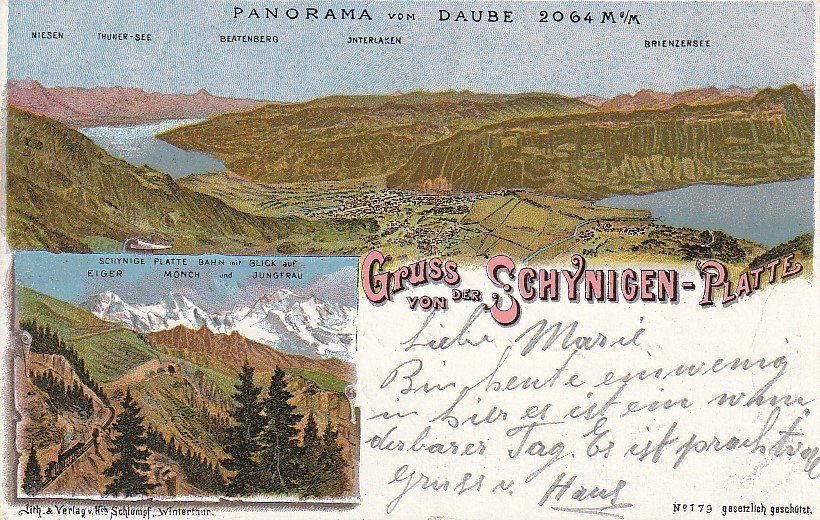 PANORAMA VOM DAUBE 2064 M ü/M
NIESEN THUNER-SEE BEATENBERG INTERLAKEN BRIENZERSEE
SCHYNIGE PLATTE BAHN mit BLICK auf
EIGER MÖNCH und JUNGFRAU
GRUSS VON DER SCHYNIGEN-PLATTE
Liebe Marie
Bin heute einwenig
hier es ist ein wun
derbarer Tag. Es ist prachtvoll
Gruss v. Hans
Lith. & Verlag v. Hch Schlumpf, Winterthur.
No 179 gesetzlich geschützt.